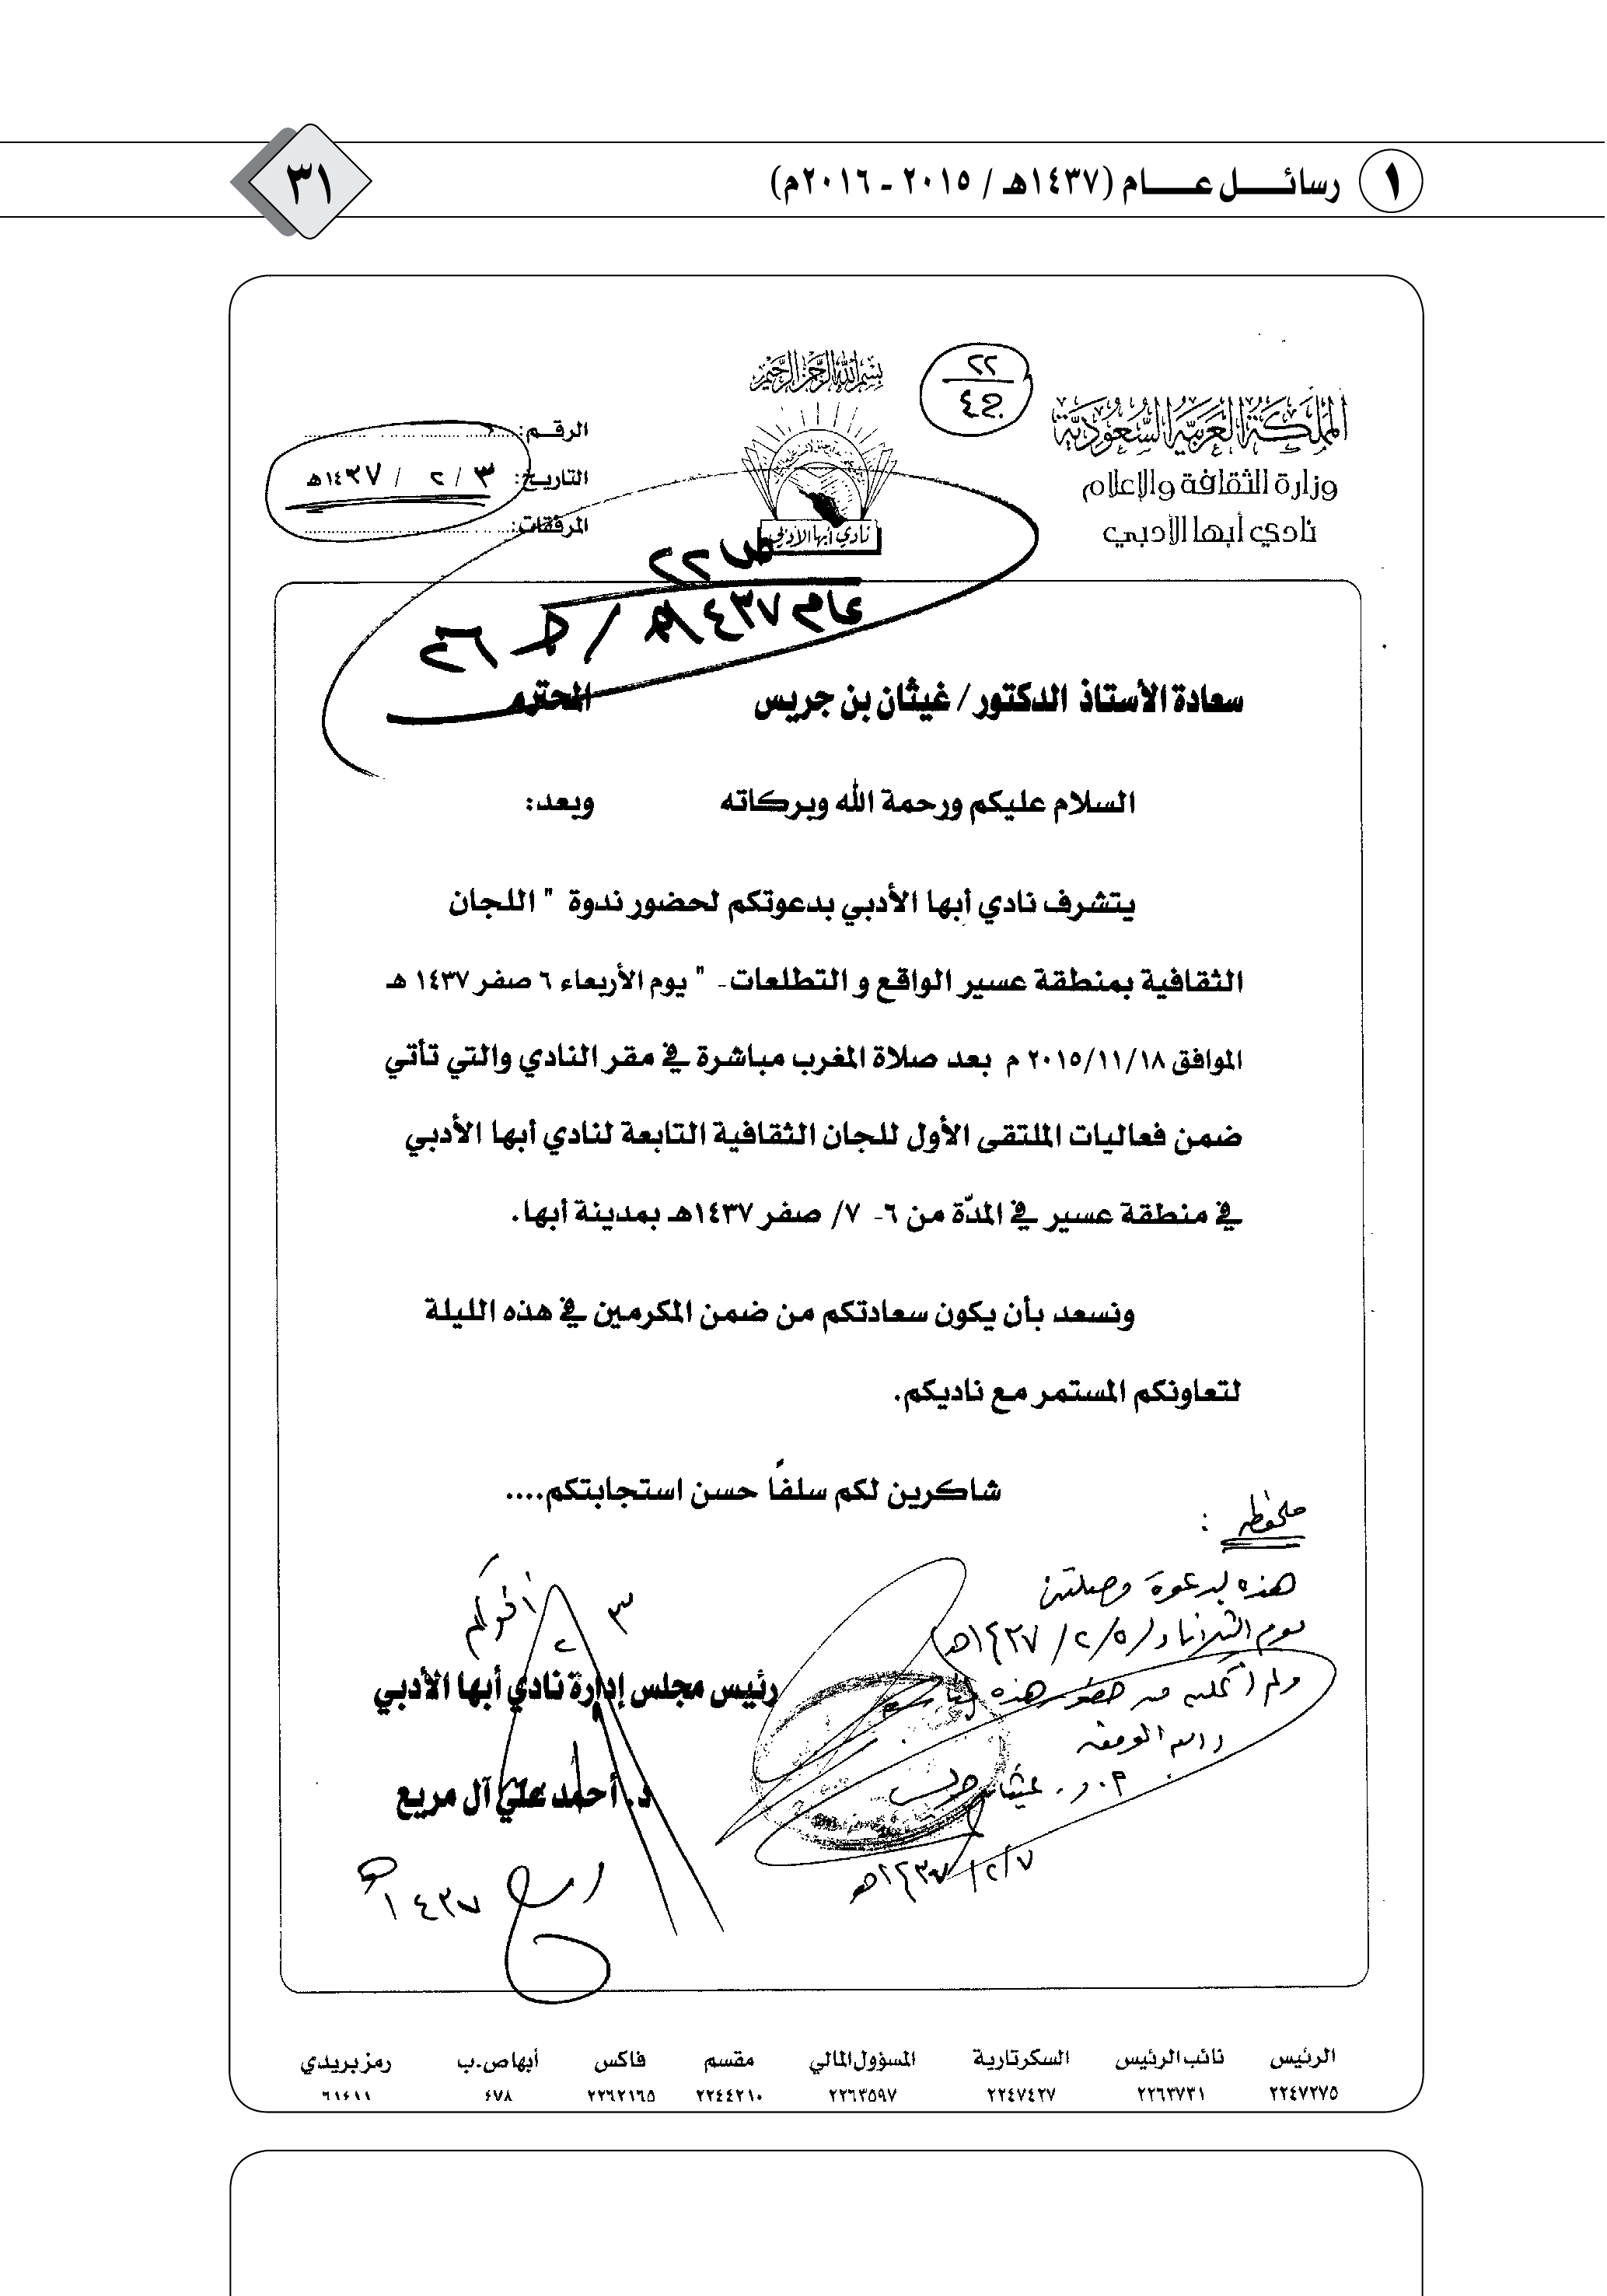 ١ رسائـــــل عـــــام (١٤٣٧هـ / ٢٠١٥ - ٢٠١٦م)
٣١
بسم الله الرحمن الرحيم
المملكة العربية السعودية
وزارة الثقافة والإعلام
نادي أبها الأدبي
٢٢
نادي أبها الأدبي
الرقـم:
التاريخ: ٣ / ٢ / ١٤٣٧هـ
المرفقات:
ص ٢٢
عام ١٤٣٧هـ /
سعادة الأستاذ الدكتور/ غيثان بن جريس المحترم
السلام عليكم ورحمة الله وبركاته وبعد:
يتشرف نادي أبها الأدبي بدعوتكم لحضور ندوة " اللجان
الثقافية بمنطقة عسير الواقع و التطلعات- " يوم الأربعاء ٦ صفر ١٤٣٧ هـ
الموافق ٢٠١٥/١١/١٨ م بعد صلاة المغرب مباشرة في مقر النادي والتي تأتي
ضمن فعاليات الملتقى الأول للجان الثقافية التابعة لنادي أبها الأدبي
في منطقة عسير في المدّة من ٦- ٧/ صفر ١٤٣٧هـ بمدينة أبها.
ونسعد بأن يكون سعادتكم من ضمن المكرمين في هذه الليلة
لتعاونكم المستمر مع ناديكم.
شاكرين لكم سلفاً حسن استجابتكم....
ملحوظة :
هذه الدعوة وصلتني
يوم الثلاثاء ٥/ ٢/ ١٤٣٧هـ
ولم أتمكن من حضور هذه
والله الموفق
أ. د. غيثان جريس
٧/ ٢/ ١٤٣٧هـ
أخوكم
رئيس مجلس إدارة نادي أبها الأدبي
د. أحمد علي آل مريع
١٤٣٧هـ
الرئيس نائب الرئيس السكرتارية المسؤول المالي مقسم فاكس أبها ص.ب رمز بريدي
٢٢٤٧٢٧٥ ٢٢٦٣٧٣١ ٢٢٤٧٤٢٧ ٢٢٦٣٥٩٧ ٢٢٤٤٢١٠ ٢٢٦٢١٦٥ ٤٧٨ ٦١٤١١